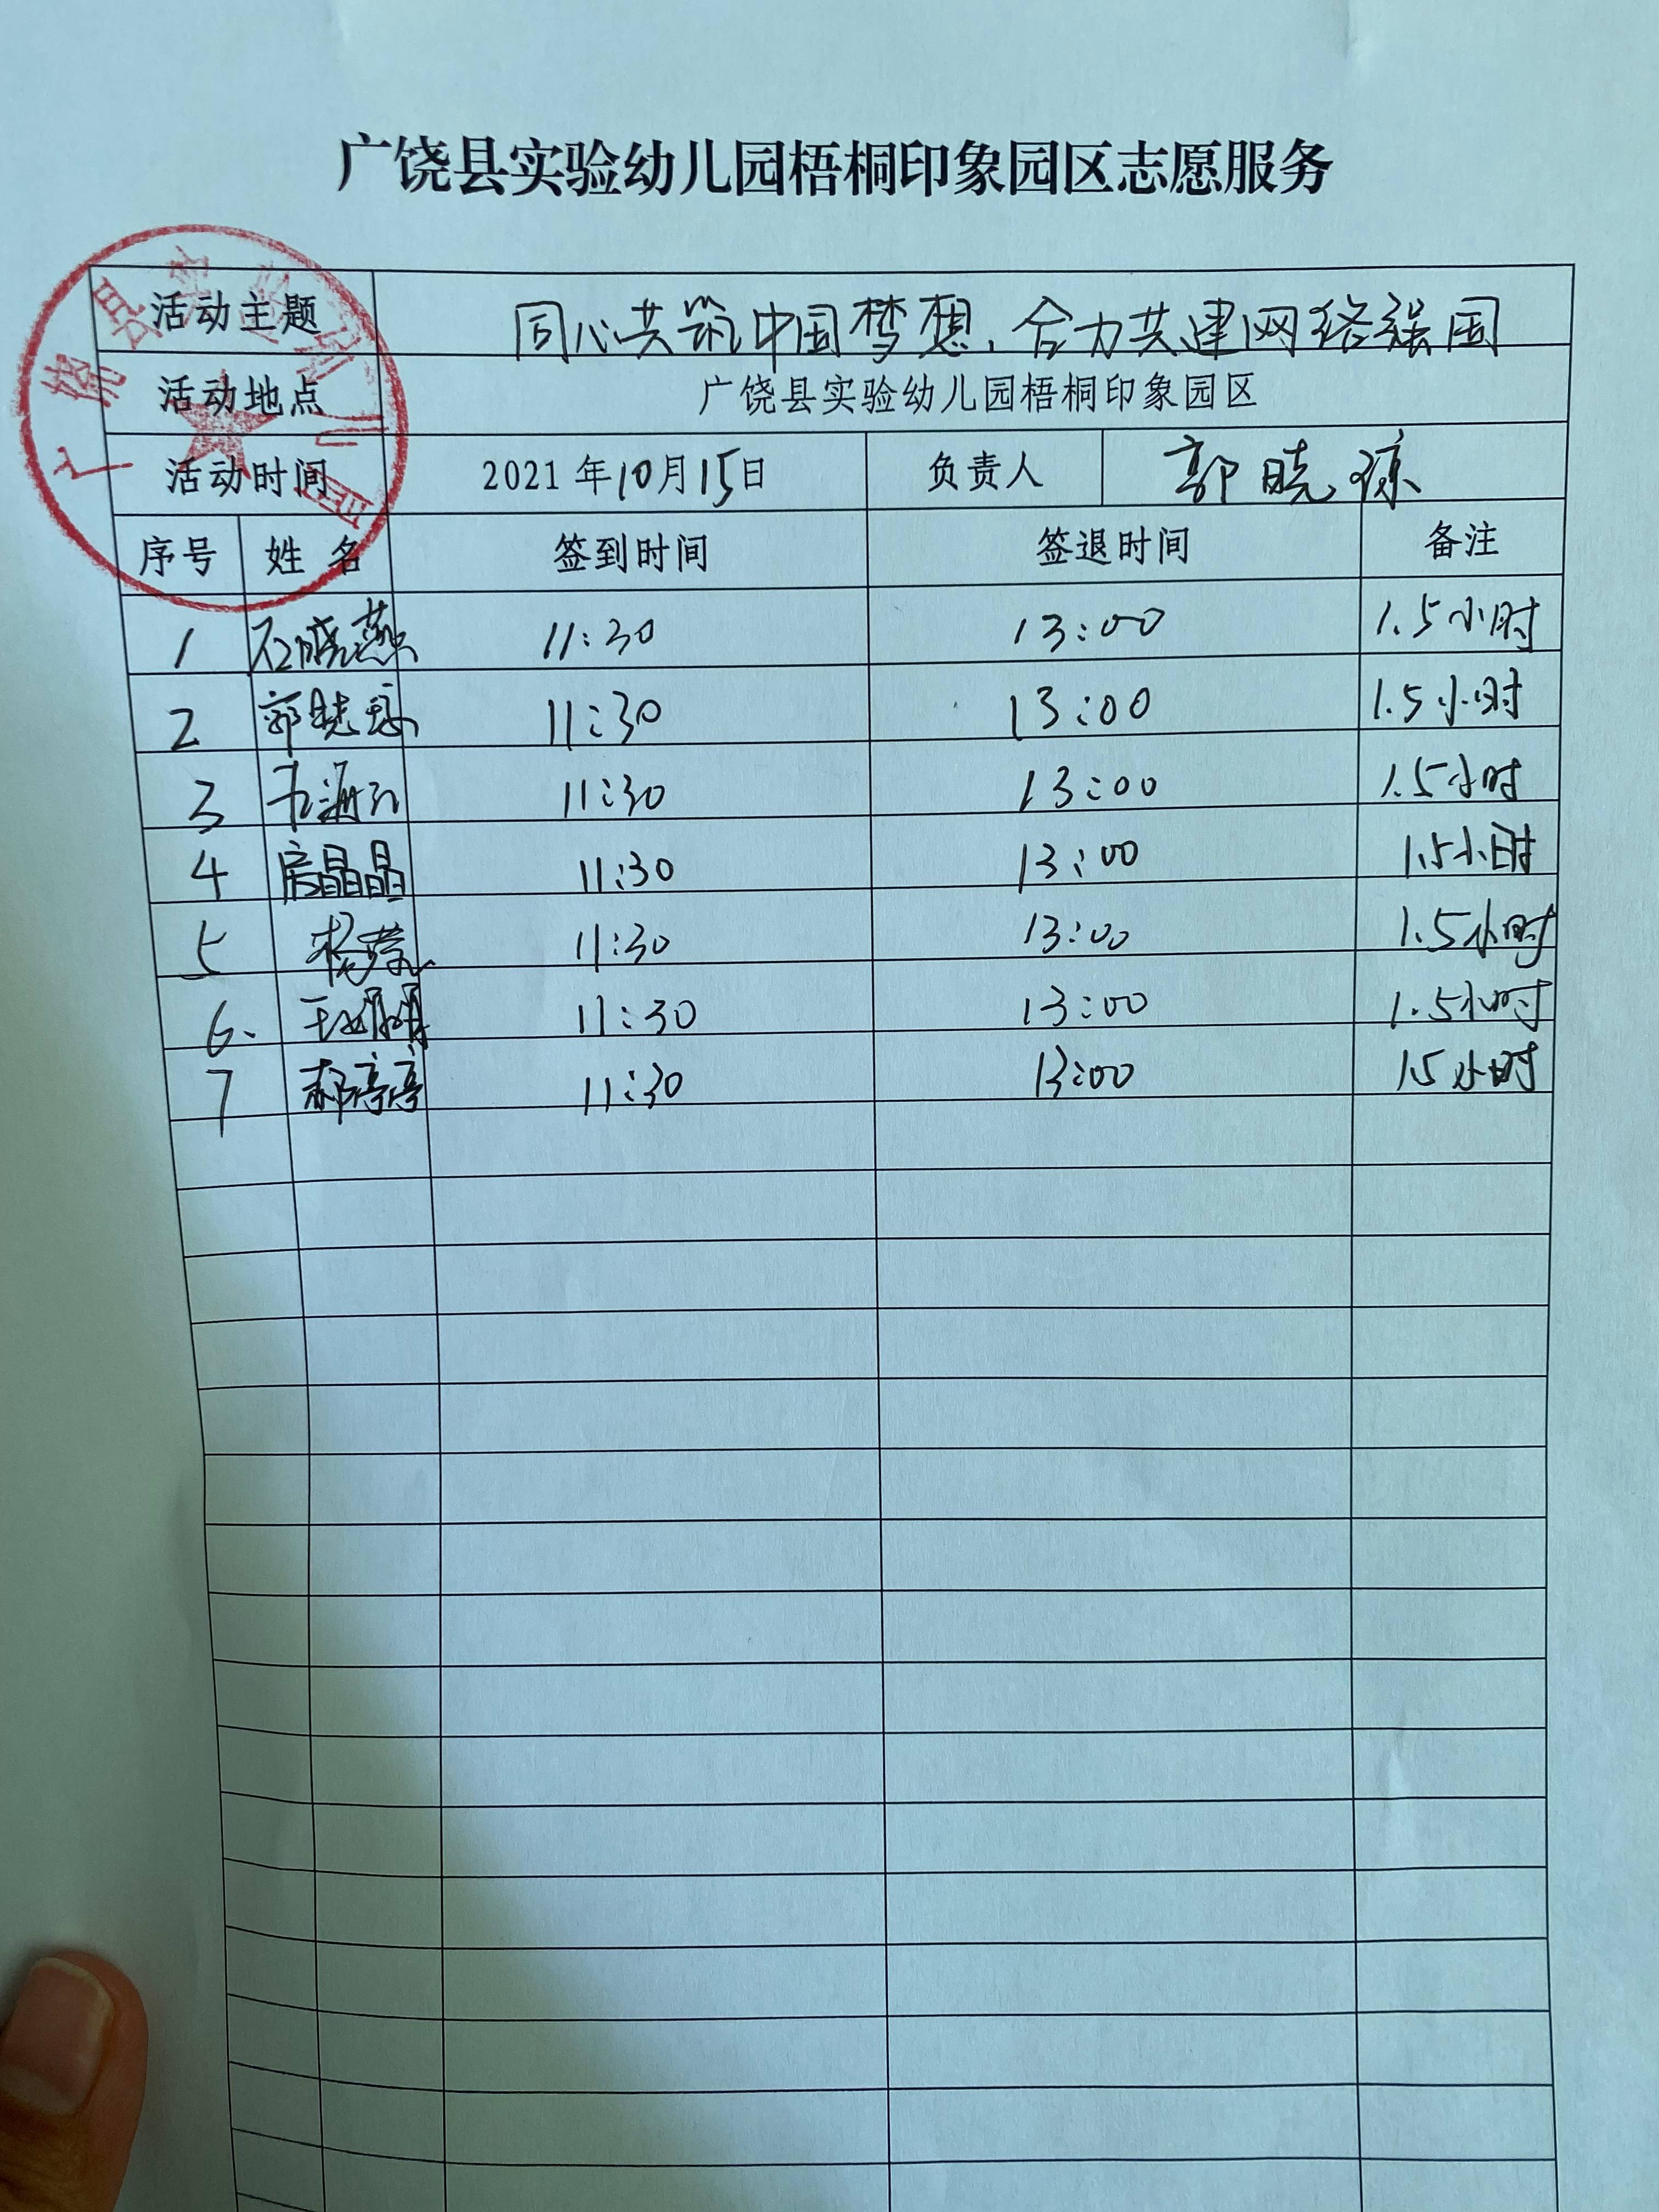 广饶县实验幼儿园梧桐印象园区志愿服务
活动主题 同心共筑中国梦想，合力共建网络强国
活动地点 广饶县实验幼儿园梧桐印象园区
活动时间 2021年10月15日 负责人 郭晓琼
序号 姓名 签到时间 签退时间 备注
1 石晓燕 11:30 13:00 1.5小时
2 郭 11:30 13:00 1.5小时
3 11:30 13:00 1.5小时
4 房晶晶 11:30 13:00 1.5小时
5 杨 11:30 13:00 1.5小时
6. 王娟娟 11:30 13:00 1.5小时
7 郝亭亭 11:30 13:00 1.5小时
广饶县实验幼儿园